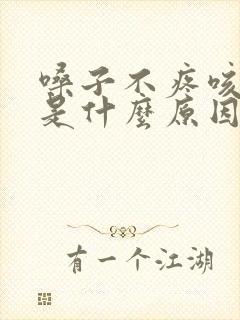 嗓子不疼咳
是什麼原因
有一个江湖